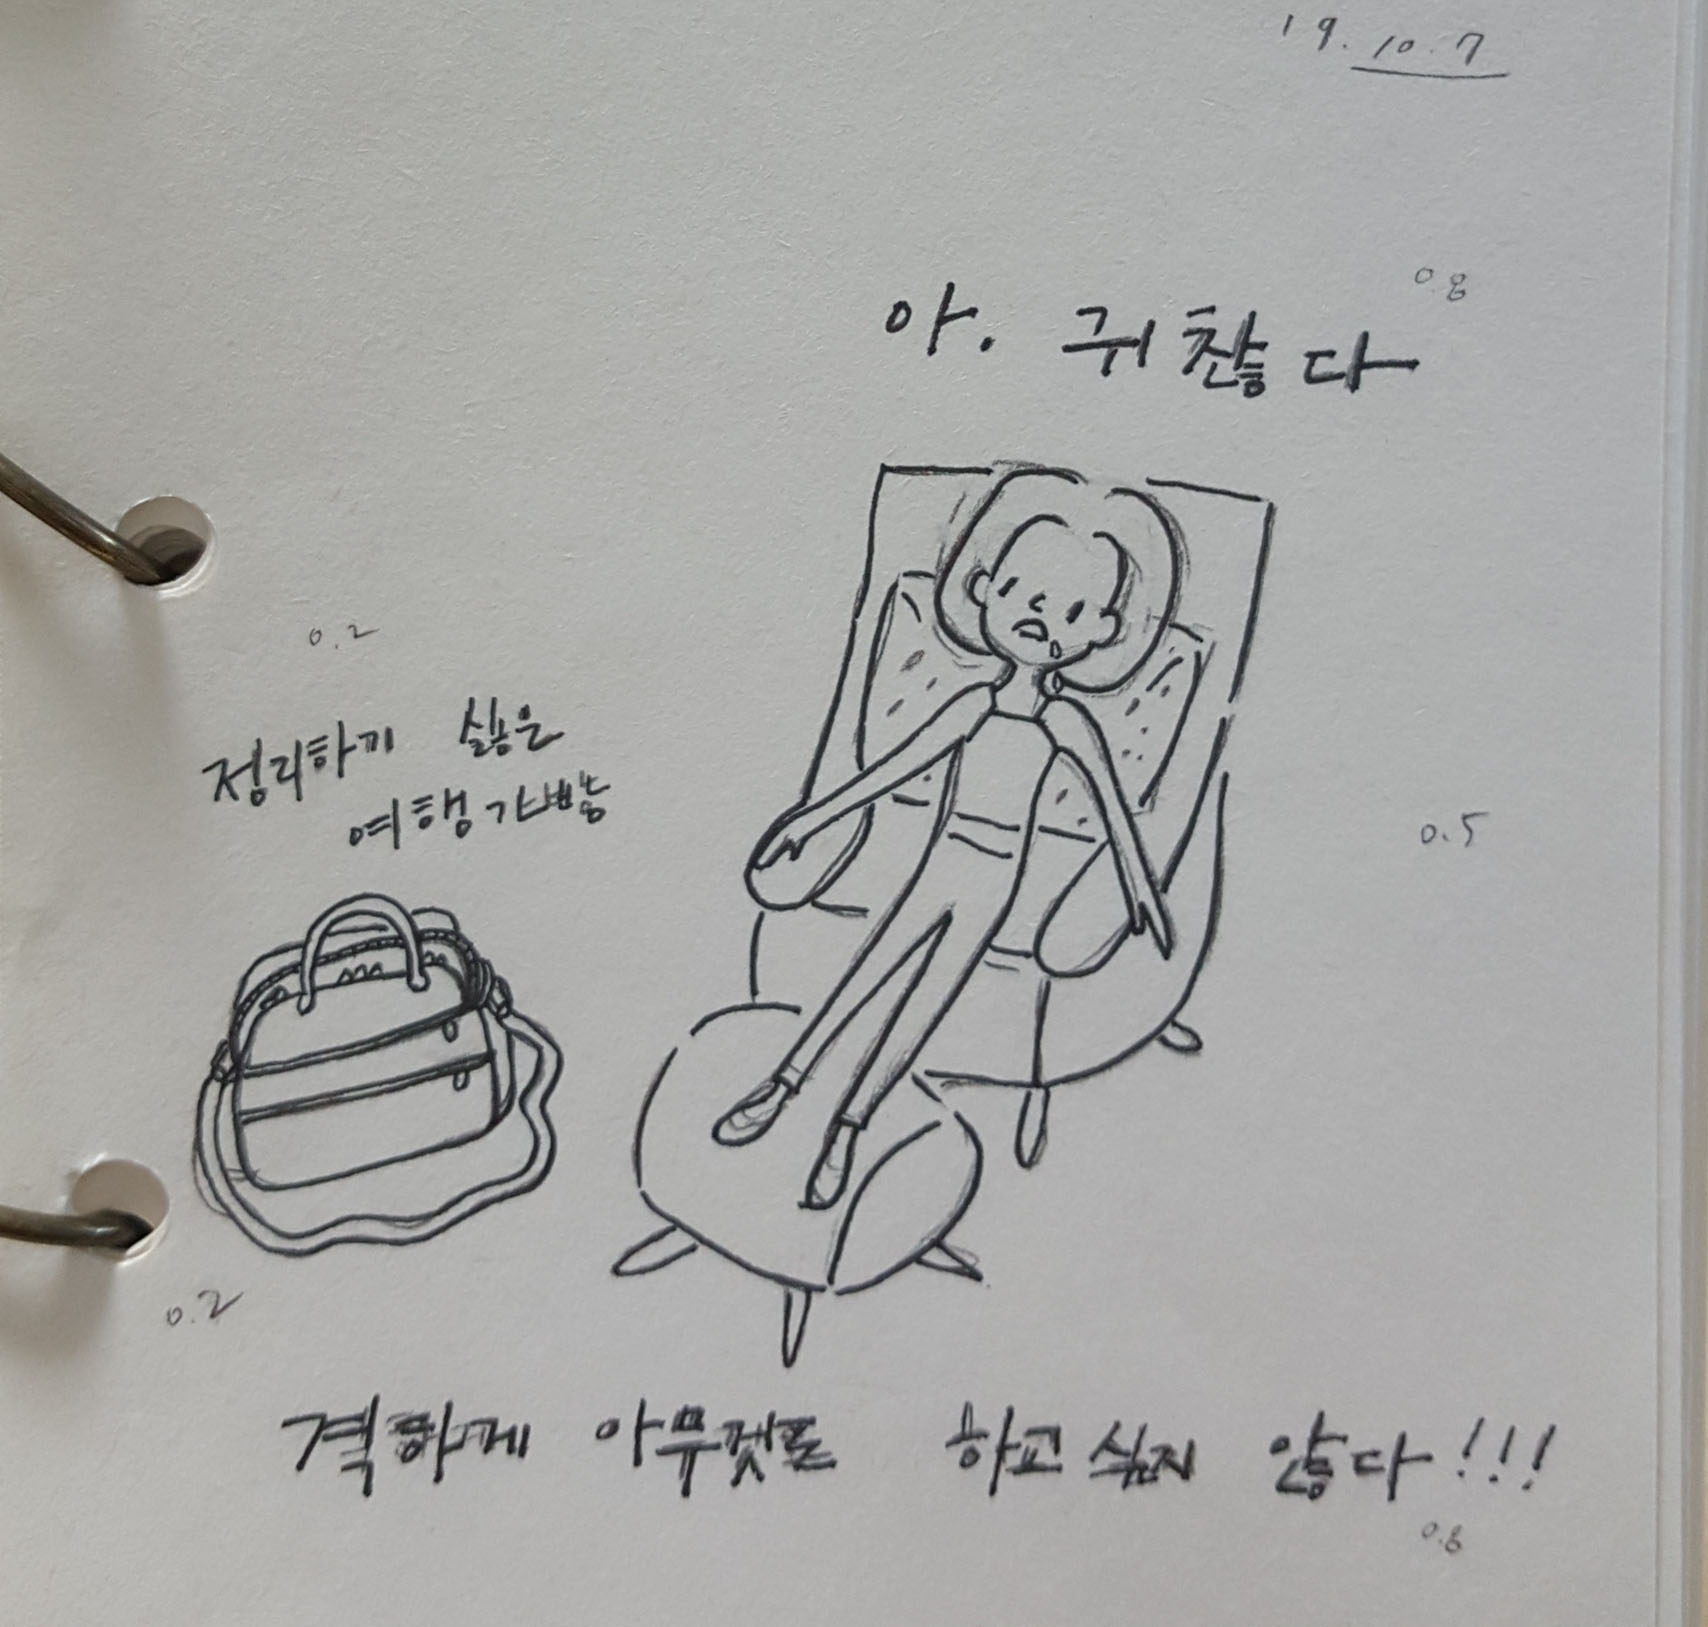 19. 10. 7
0.8
아. 귀찮다
0.2
정리하기 싫은
여행가방
0.5
0.2
격하게 아무것도 하고싶지 않다!!!
0.8